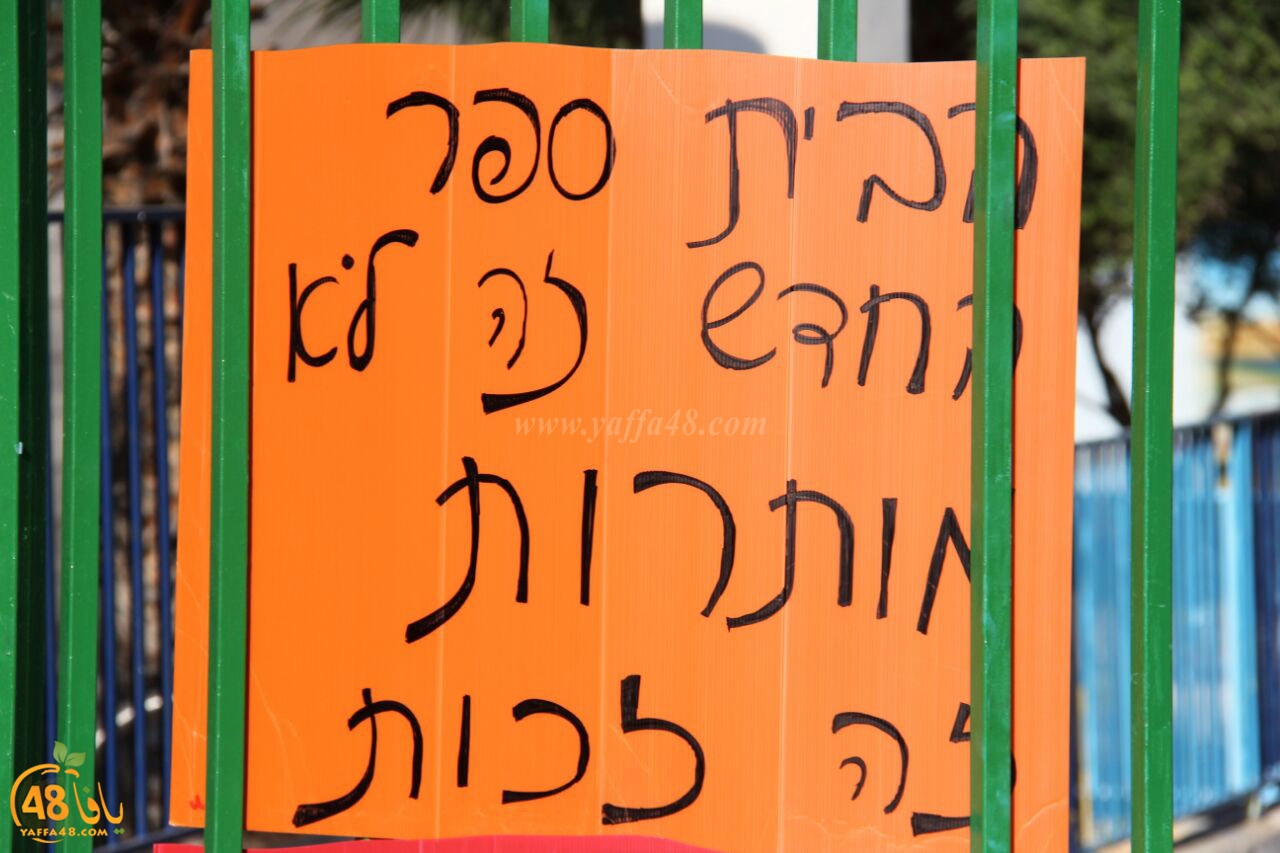 הבית ספר
החדש זה לא
מותרות
זה זכות
www.yaffa48.com
يافا 48
YAFFA48.COM